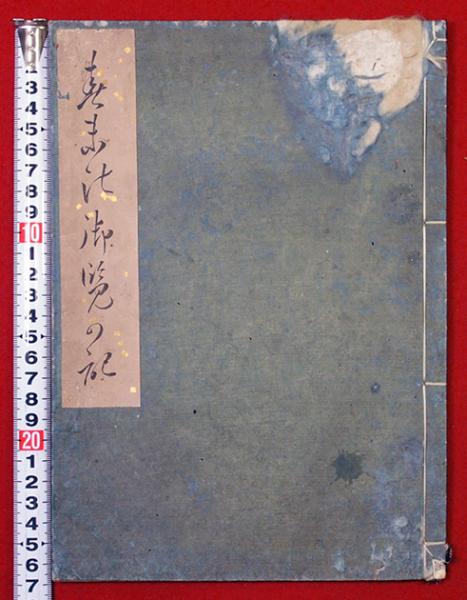 御覧の記
3
4
5
6
7
8
9
10
1
2
3
4
5
6
7
8
9
20
1
2
3
4
5
6
7